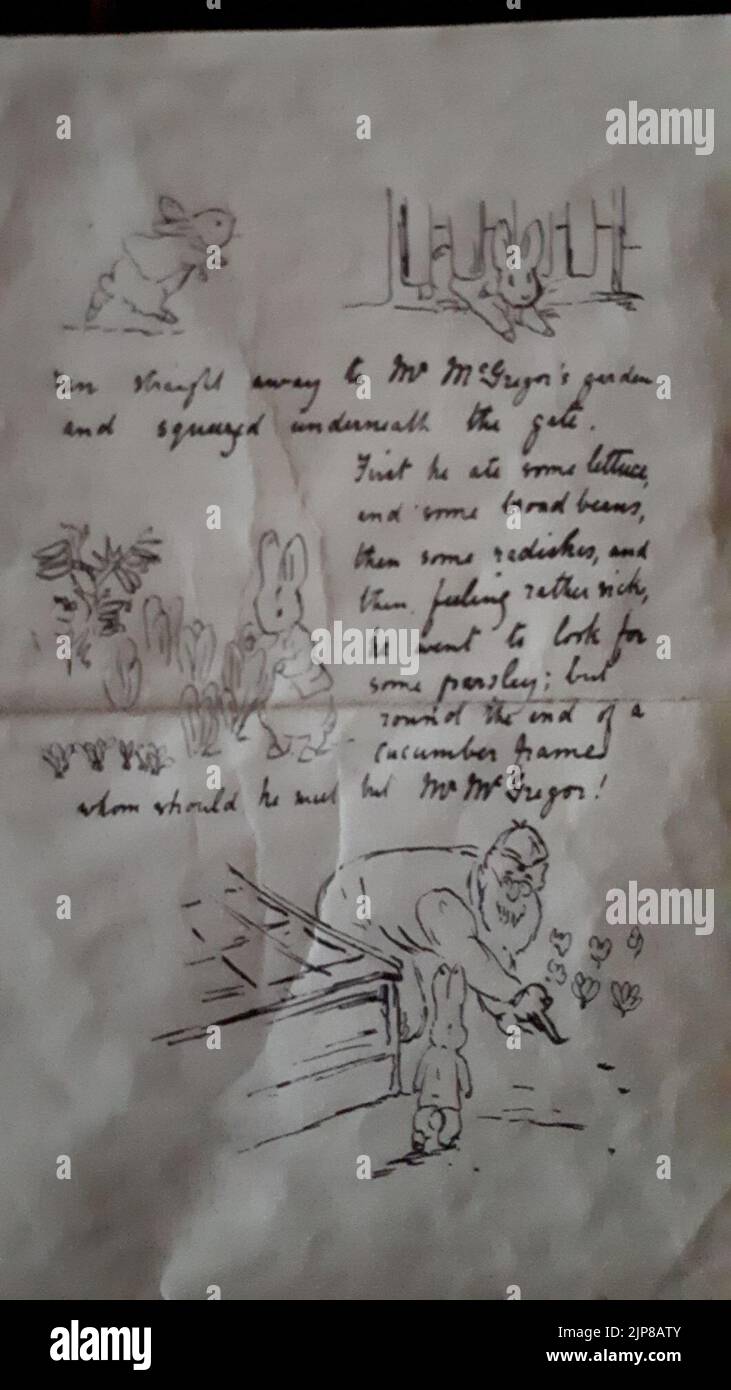 alamy
ran straight away to Mr McGregor's garden
and squeezed underneath the gate.
First he ate some lettuce,
and some broad beans,
then some radishes, and
then, feeling rather sick,
he went to look for
some parsley; but
round the end of a
cucumber frame
whom should he meet but Mr McGregor!
alamy
alamy
Image ID: 2JP8ATY
www.alamy.com